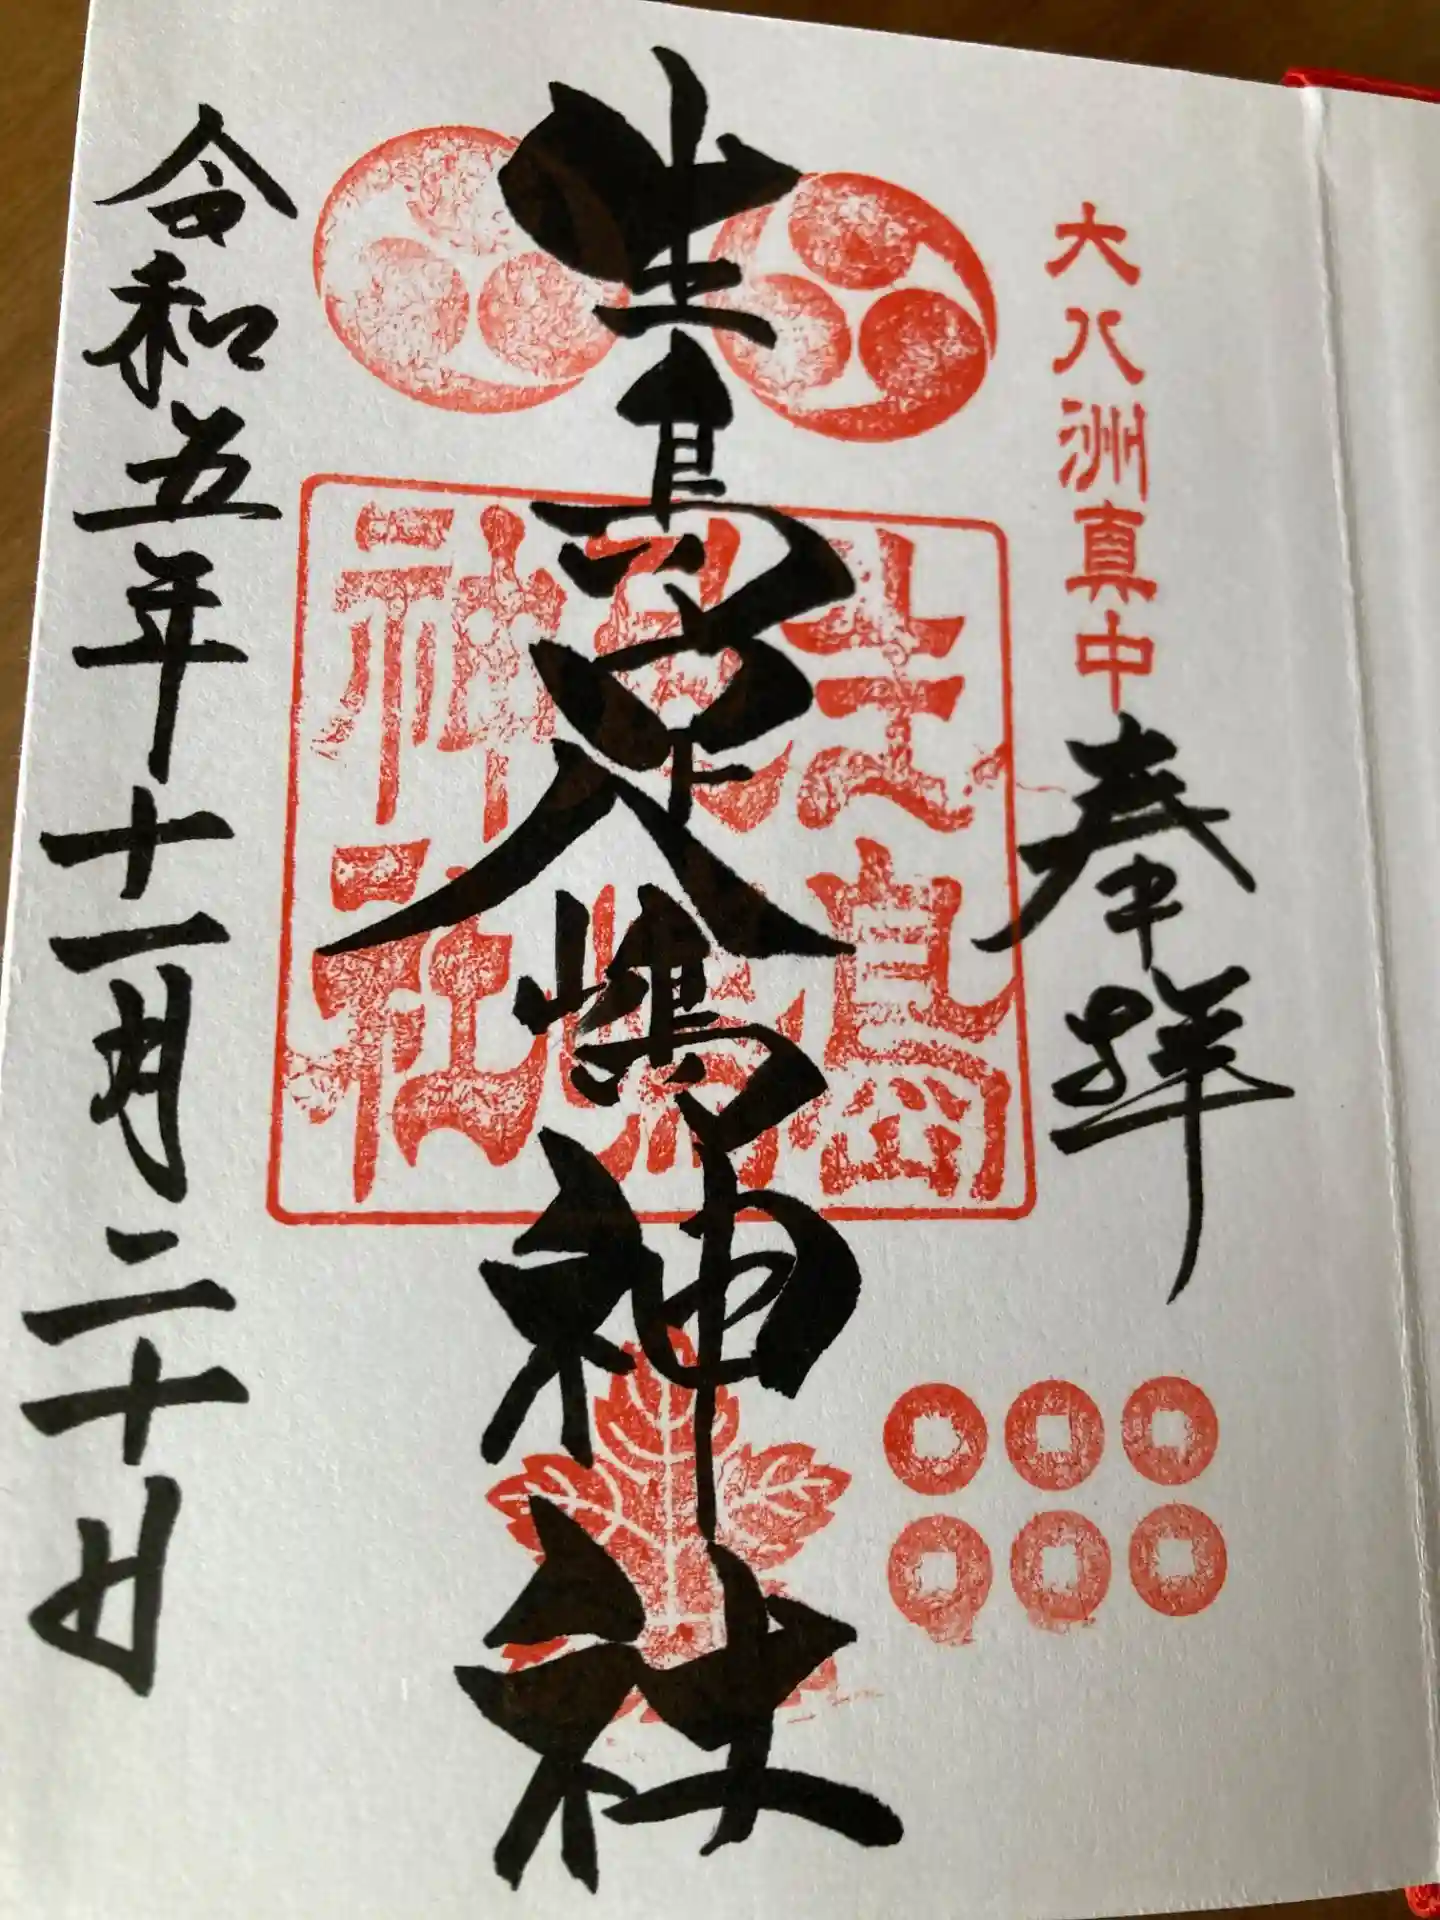 大八洲真中
奉拝
生島足島神社
生島
足島
神社
令和五年十一月二十日